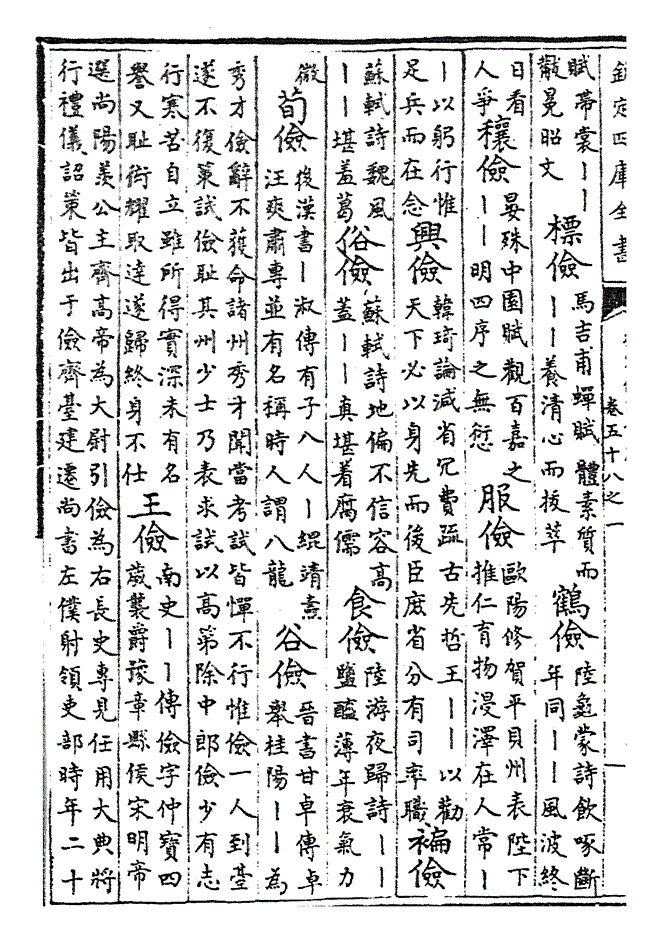 欽定四庫全書
卷五十八之一
賦帶裳丨丨黻冕昭文 標儉 馬吉甫蟬賦體素質而丨丨養清心而拔萃 鶴儉 陸龜蒙詩飲啄斷年同丨丨風波終
日看人爭 穰儉 晏殊中園賦觀百嘉之丨丨明四序之無愆 服儉 歐陽修賀平貝州表陛下推仁育物浸澤在人常丨
丨以躬行惟足兵而在念 興儉 韓琦論減省冗費疏古先哲王丨丨以勸天下必以身先而後臣庶省分有司率職 褊儉
蘇軾詩魏風丨丨堪羞葛 俗儉 蘇軾詩地偏不信容高蓋丨丨真堪着腐儒 食儉 陸游夜歸詩丨丨鹽醯薄年衰氣力
微 荀儉 後漢書丨淑傳有子八人丨緄靖燾汪爽肅專並有名稱時人謂八龍 谷儉 晉書甘卓傳卓舉桂陽丨丨為
秀才儉辭不獲命諸州秀才聞當考試皆憚不行惟儉一人到臺
遂不復策試儉恥其州少士乃表求試以高第除中郎儉少有志
行寒苦自立雖所得實深未有名譽又恥衒耀取達遂歸終身不仕 王儉 南史丨丨傳儉字仲寶四歲襲爵豫章縣侯宋明帝
選尚陽羨公主齊高帝為大尉引儉為右長史專見任用大典將
行禮儀詔策皆出于儉齊臺建遷尚書左僕射領吏部時年二十